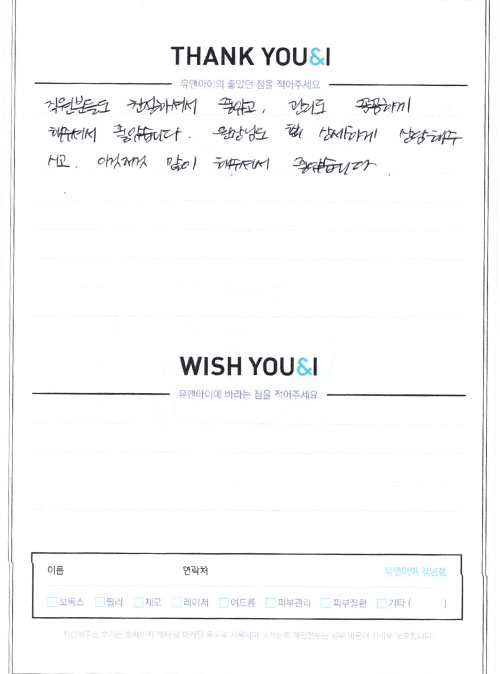 THANK YOU&I
유앤아이의 좋았던 점을 적어주세요
직원분들도 친절하셔서 좋았고, 관리도 꼼꼼하게
해주셔서 좋았습니다. 원장님도 상세하게 상담해주
시고, 이것저것 많이 해주셔서 좋았습니다.
WISH YOU&I
유앤아이에 바라는 점을 적어주세요
이름 연락처 유앤아이 강남점
보톡스 필러 제모 레이저 여드름 피부관리 피부질환 기타 ( )